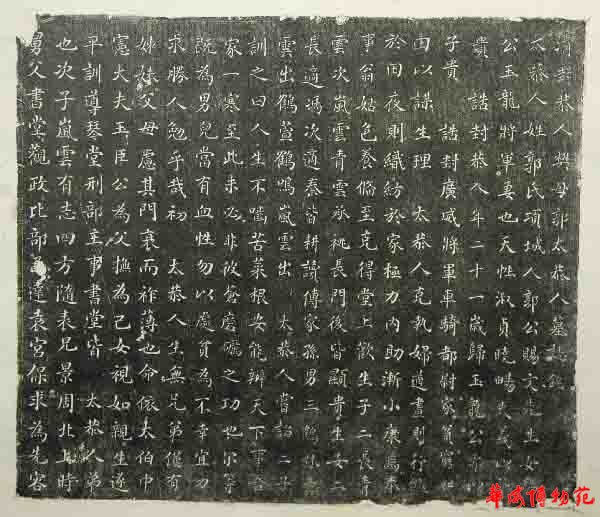 清封恭人樊母郭太恭人墓誌銘
太恭人姓郭氏項城人郭公賜文先生女
公玉龍將軍妻也天性淑貞曉暢大義以
貴 誥封恭人年二十一歲歸玉龍公亦以
子貴 誥封廣威將軍車騎都尉家貧
由以謀生理 太恭人克執婦道晝則行
於田夜則織紡於家極力內助漸小康焉奉
事翁姑色養備至克得堂上歡生子二長青
雲次嵐雲青雲承祧長門後皆顯貴生女二
長適馮次適秦皆耕讀傳家孫男三鶴
雲出鶴萱鶴鳴嵐雲出 太恭人嘗詔二子
訓之曰人生不嚙苦菜根安能辦天下事吾
家一寒至此未必非彼蒼磨礪之功也尔等
既為男兒當有血性勿以處貧為不幸宜力
求勝人勉乎哉初 太恭人生無兄弟僅有
姊妹父母慮其門衰而祚薄也命依太伯中
憲大夫玉臣公為父撫為己女視如親生遂
平訓導琴堂刑部主事書堂皆 太恭人弟
也次子嵐雲有志四方隨表兄景周北上時
舅父書堂觀政比部達袁宮保求為先容
華夏博物苑